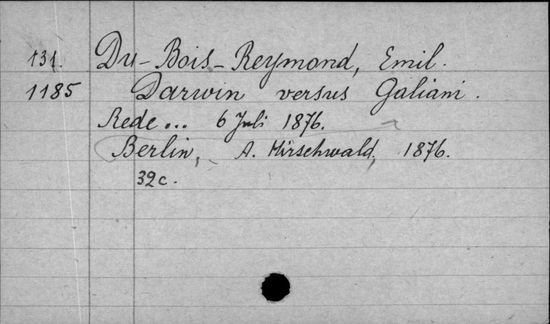 131. Du-Bois-Reymond, Emil.
1185 Darwin versus Galiani.
Rede... 6 Juli 1876.
Berlin, A. Hirschwald, 1876.
32c.